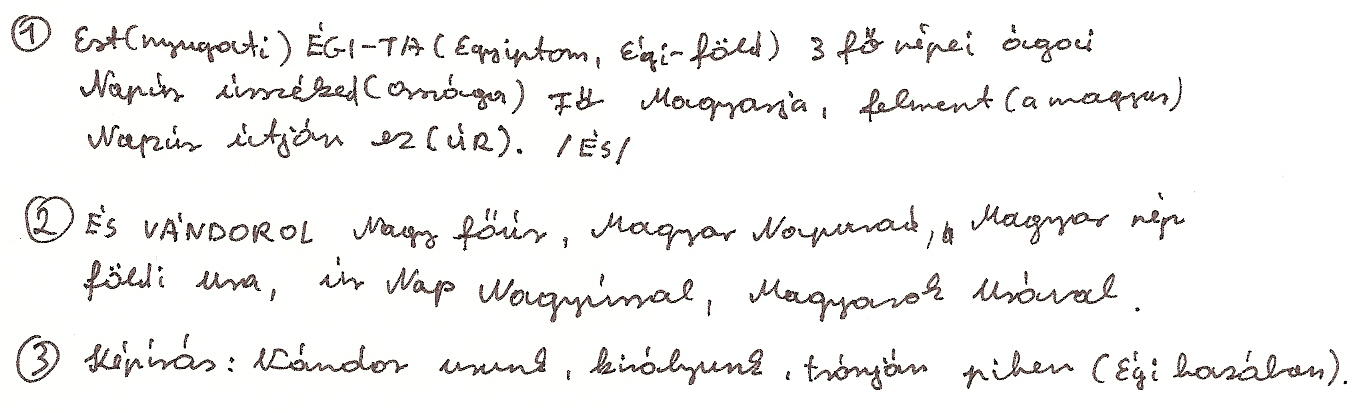 ① Est(nyugati) ÉGI-TA (Egyiptom, égi-föld) 3 fő népei ágai
Napúr úrszéked (országa) Fő Magyarja, felment (a magyar)
Napúr útján ez (ÚR). /ÉS/
② ÉS VÁNDOROL Nagy főúr, Magyar Napurad, a Magyar nép
földi ura, úr Nap Nagyúrral, Magyarok Urával.
③ Képírás: Kándor urunk, királyunk, trónján pihen (Égi hazában).